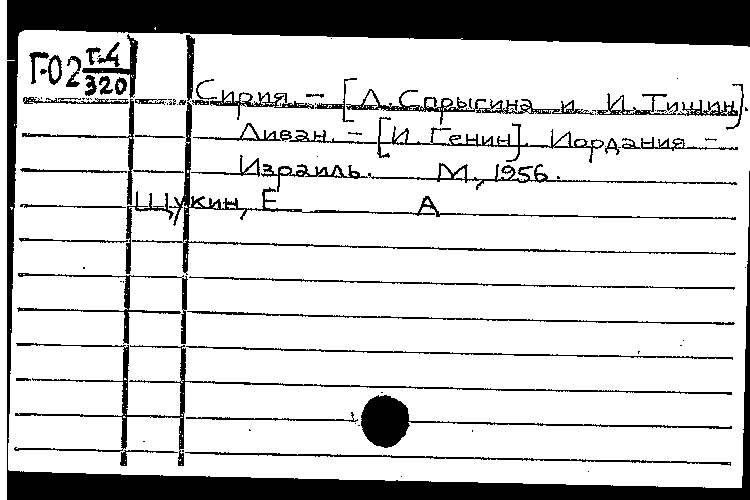 Г-02 т.4
320
Сирия. - [Л. Спрыгина и И. Тишин].
Ливан. - [И. Генин]. Иордания -
Израиль. М., 1956.
Щукин, Е А